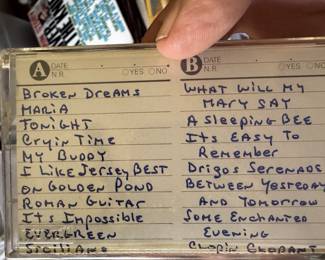 A DATE
N.R. YES NO
BROKEN DREAMS
MARIA
TONIGHT
CRYIN TIME
MY BUDDY
I LIKE JERSEY BEST
ON GOLDEN POND
ROMAN GUITAR
ITS IMPOSSIBLE
EVERGREEN
SICILIANO
B DATE
N.R. YES NO
WHAT WILL MY
MARY SAY
A SLEEPING BEE
ITS EASY TO
REMEMBER
DRIGOS SERENADE
BETWEEN YESTERDAY
AND TOMORROW
SOME ENCHANTED
EVENING
CHOPIN